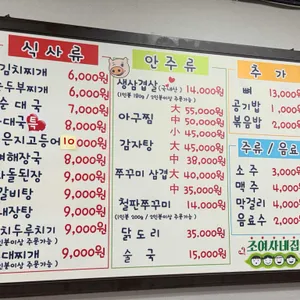 식사류
김치찌개 6,000원
순두부찌개 6,000원
순대국 7,000원
특 8,000원
은지고등어 10
해장국 8,000원
돌된장 9,000원
갈비탕 9,000원
내장탕 9,000원
두루치기 9,000원
(2인분이상 주문가능)
대찌개 9,000원
안주류
생삼겹살 (국내산) 14,000원
(1인분 180g / 2인분이상 주문가능)
아구찜 大 55,000원
中 50,000원
小 45,000원
감자탕 大 45,000원
中 38,000원
쭈꾸미 삼겹 大 40,000원
中 35,000원
철판쭈꾸미 14,000원
(1인분 200g / 2인분이상 주문가능)
닭도리 35,000원
술국 15,000원
추가
뼈 13,000
공기밥 1,000
볶음밥 2,000
주류/음료
소주 3,000
맥주 4,000
막걸리 4,000
음료수 2,000